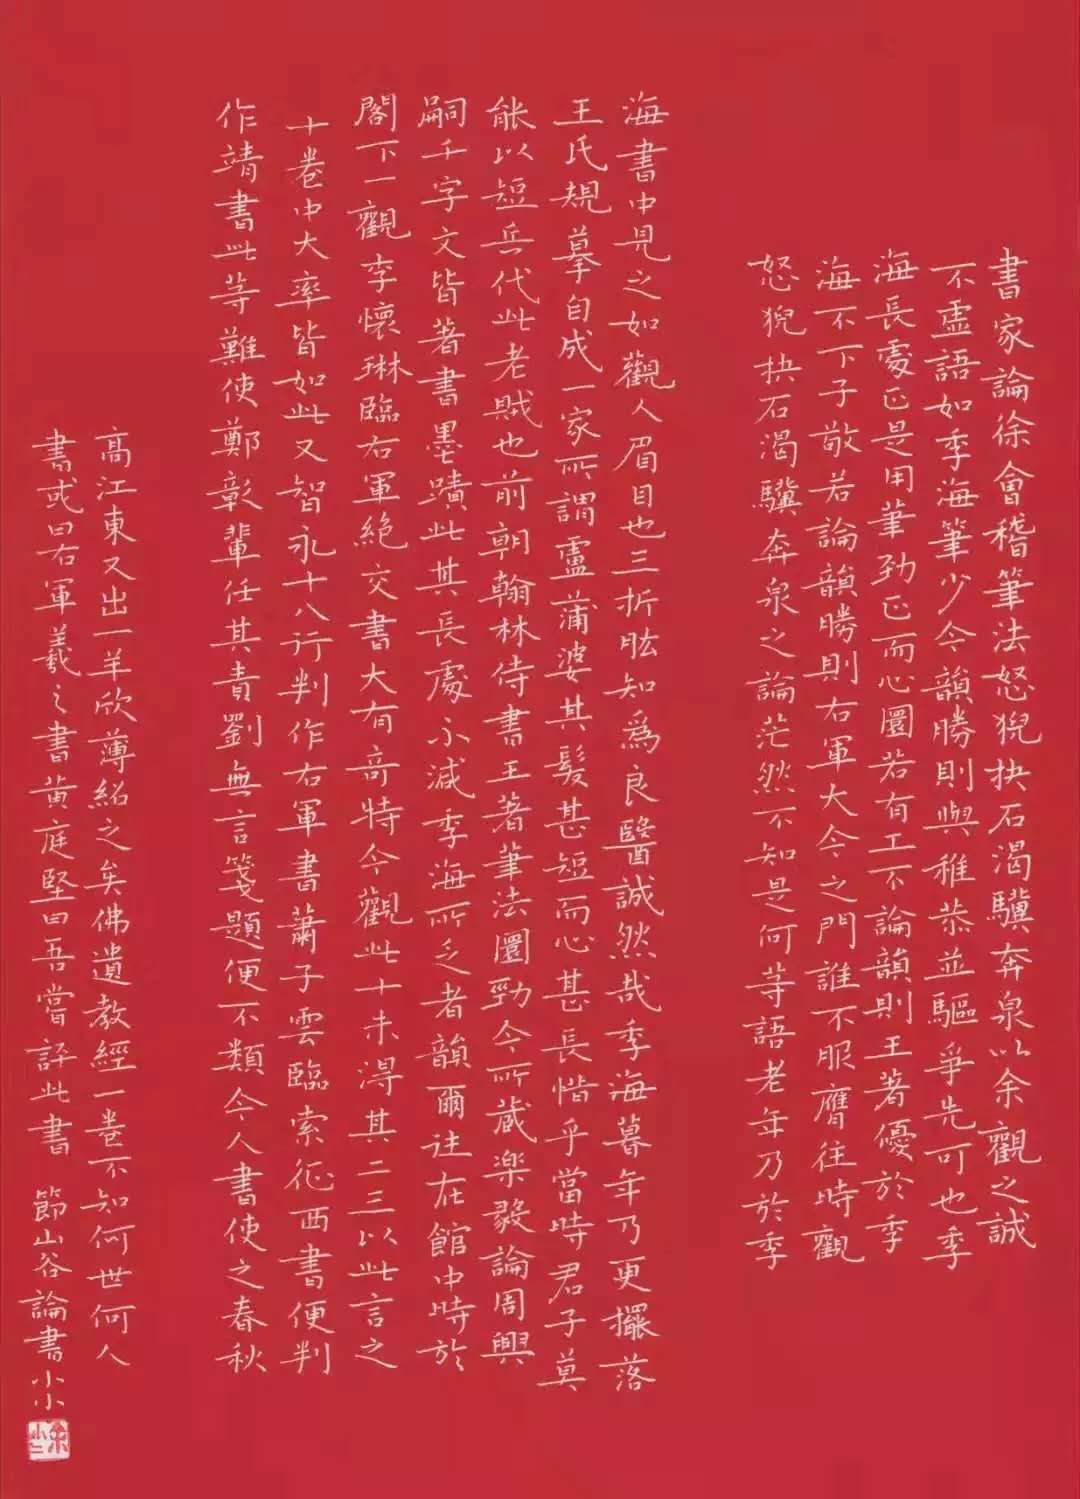 書家論徐會稽筆法怒猊抉石渴驥奔泉以余觀之誠
不虛語如季海筆少令韻勝則與稚恭並驅爭先可也季
海長處正是用筆勁正而心圜若有工不論韻則王著優於季
海不下子敬若論韻勝則右軍大令之門誰不服膺往時觀
怒猊抉石渴驥奔泉之論茫然不知是何等語老年乃於季
海書中見之如觀人眉目也三折肱知為良醫誠然哉季海暮年乃更擺落
王氏規摹自成一家所謂盧蒲嫳其髮甚短而心甚長惜乎當時君子莫
能以短兵代此老賊也前朝翰林侍書王著筆法圜勁今所蔵楽毅論周興
嗣千字文皆著書墨蹟此其長處不減季海所乏者韻爾往在館中時於
閣下一觀李懷琳臨右軍絕交書大有奇特今觀此十未淂其二三以此言之
十卷中大率皆如此又智永十八行判作右軍書蕭子雲臨索征西書便判
作靖書此等難使鄭彰輩任其責劉無言箋題便不類今人書使之春秋
高江東又出一羊欣薄紹之矣佛遺教經一卷不知何世何人
書或曰右軍羲之書黃庭堅曰吾嘗評此書 節山谷論書小小